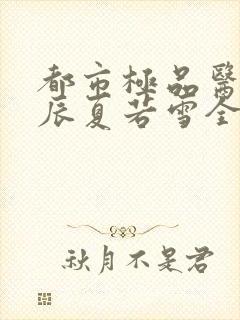 都市極品醫
辰夏若雪全
秋月不是君